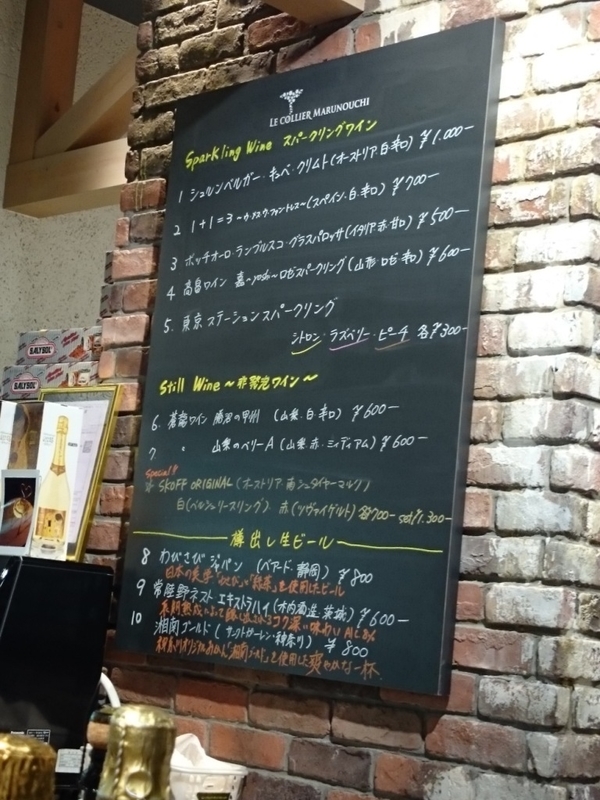 LE COLLIER MARUNOUCHI
Sparkling Wine スパークリングワイン
1 シュルンベルガー・キュベ・クリムト(オーストリア 白 辛口) ¥1.000-
2 1+1=3 (スペイン・白・辛口) ¥700-
3 ポッチオーロ・ランブルスコ・グラスパロッサ(イタリア・赤・甘口) ¥500-
4 高畠ワイン 嘉〜yoshi〜ロゼスパークリング(山形 ロゼ 辛口) ¥600-
5. 東京ステーションスパークリング
シトロン・ラズベリー・ピーチ 各¥300-
Still Wine 〜非発泡ワイン〜
6. 蒼龍ワイン 勝沼の甲州 (山梨・白 辛口) ¥600-
7 〃 山梨のベリーA (山梨 赤・ミィディアム) ¥600-
Special!!
SKOFF ORIGINAL (オーストリア・南シュタイヤーマルク)
白(ベルシュリースリング) 赤(ツヴァイゲルト) 各700- set¥1.300-
樽出し生ビール
8 わびさびジャパン (ベアード・静岡) ¥800
日本の美学"わさび"と"緑茶"を使用したビール
9 常陸野ネスト エキストラハイ(木内酒造 茨城) ¥600-
長期熟成によって醸し出されるコク深い味わい
10 湘南ゴールド (サンクトガーレン・神奈川) ¥800
神奈川オリジナルみかん"湘南ゴールド"を使用した爽やかな一杯
BALYSOL
BALYSOL